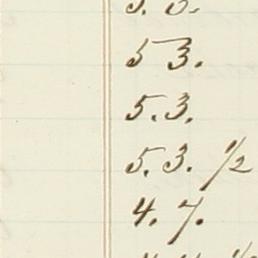 5 3.
5.3.
5.3. 1/2
4.7.